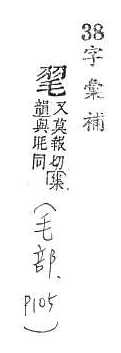 38字彙補
毣
又莫報切[集
韻與眊同
(毛部.P105)